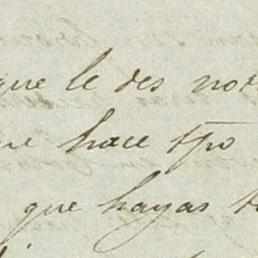 que le des not
hace tpo
que hayas t